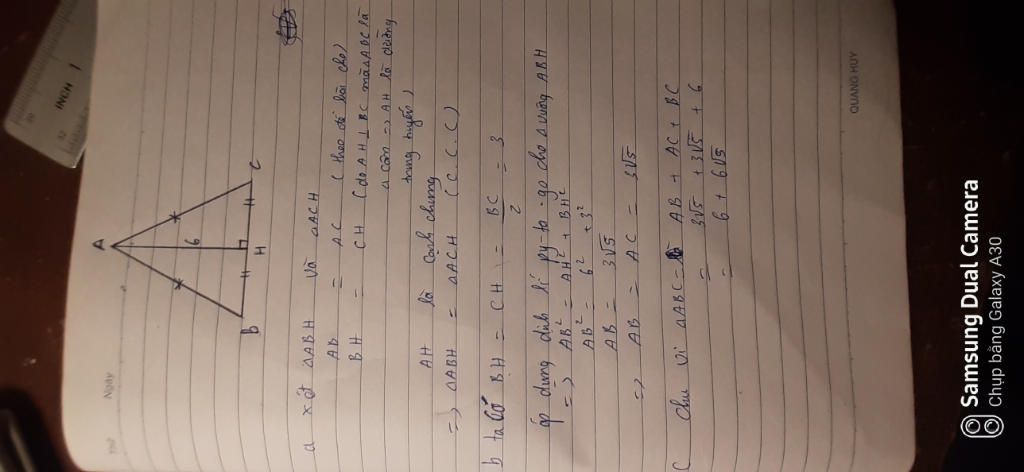 Thứ
Ngày
A
6
B
H
C
a xét △ABH và △ACH
AB = AC (theo đề bài cho)
BH = CH (do AH ⊥ BC mà △ABC là
△ cân => AH là đường
trung tuyến)
AH là cạnh chung
=> △ABH = △ACH (C.C.C)
b ta có BH = CH = BC/2 = 3
áp dụng định lí py-ta-go cho △vuông ABH
=> AB² = AH² + BH²
AB² = 6² + 3²
AB = 3√5
=> AB = AC = 3√5
C chu vi △ABC = AB + AC + BC
= 3√5 + 3√5 + 6
= 6 + 6√5
QUANG HUY
INCH 1
Samsung Dual Camera
Chụp bằng Galaxy A30